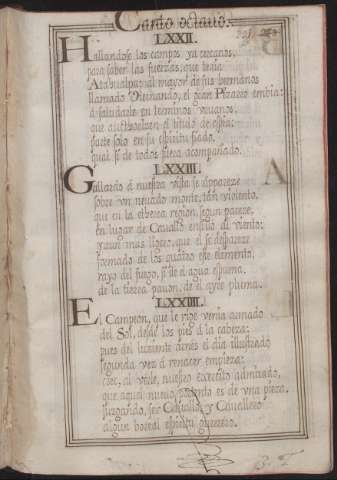 Canto octauo.
LXXII.
Hallandose los campos ya cercanos,
para saber las fuerzas, que traia
Atabualpa; al mayor de sus hermanos
llamado Fernando, el gran Pizarro embia:
á saludarle en terminos vrbanos,
que autorizen á titulo de espia:
parte solo en su espiritu fiado,
qual si de todos fuera acompañado.
LXXIII.
Gallardo á nuestra vista se aparece
sobre vn neuado monte, tan violento,
que en la etherea region, segun parece,
en lugar de Cauallo ensilló al viento:
mas ligero, que el se desparece
formado de los quatro este elemento;
rayo del fuego, si de el agua espuma,
de la tierra pauon, de el ayre pluma.
LXXIIII.
El Campeon, que le rige venia armado
del Sol, desde los pies á la cabeza;
pues del luziente arnes el dia illustrado
segunda vez á renacer empieza:
cree, al verle, nuestro exercito admirado,
que aquel nueuo portento es de vna pieza,
juzgando, ser Cauallo, y Cauallero
algun boreal espiritu guerrero.